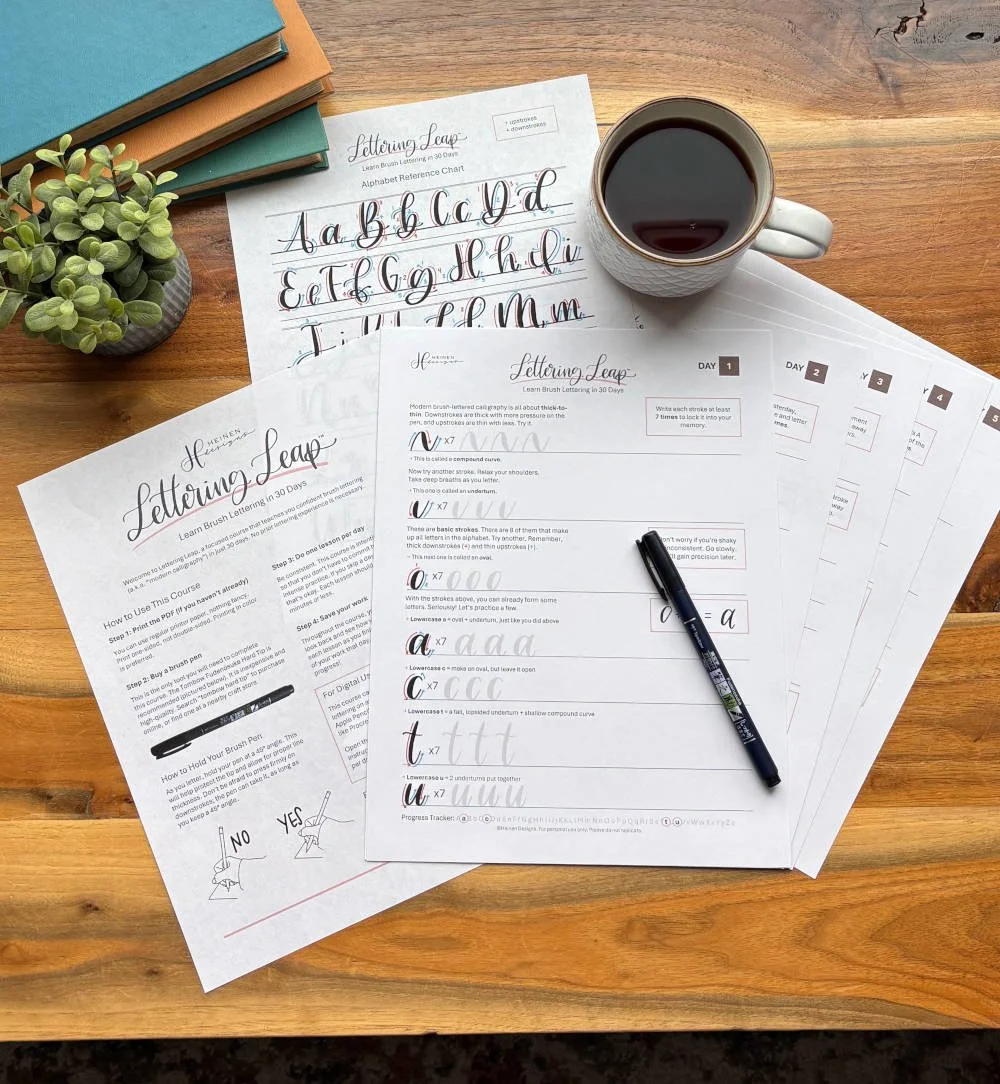 Lettering Leap™
Learn Brush Lettering in 30 Days
Alphabet Reference Chart
↑ upstrokes
↓ downstrokes
A a B b C c D d
E e F f G g H h I i
HEINEN
designs
Lettering Leap™
Learn Brush Lettering in 30 Days
Welcome to Lettering Leap, a focused course that teaches you confident brush lettering
(a.k.a. "modern calligraphy") in just 30 days. No prior lettering experience is necessary.
How to Use This Course
Step 1: Print the PDF (if you haven't already)
You can use regular printer paper, nothing fancy.
Print one-sided, not double-sided. Printing in color
is preferred.
Step 2: Buy a brush pen
This is the only tool you will need to complete
this course. The Tombow Fudenosuke Hard Tip is
recommended (pictured below). It is inexpensive and
high-quality. Search "tombow hard tip" to purchase
online, or find one at a nearby craft store.
How to Hold Your Brush Pen
As you letter, hold your pen at a 45° angle. This
will help protect the tip and allow for proper line
thickness. Don't be afraid to press firmly on
downstrokes; the pen can take it, as long as
you keep a 45° angle.
NO
YES
Step 3: Do one lesson per day
Be consistent. This course is
so that you don't have to commit
intense practice. If you skip a day
that's okay. Each lesson should
minutes or less.
Step 4: Save your work
Throughout the course,
look back and see how
each lesson as you
of your work that day
progress!
For Digital
This course
lettering on
Apple Pencil
like
Open the
HEINEN
designs
Lettering Leap™
Learn Brush Lettering in 30 Days
DAY 1
Modern brush-lettered calligraphy is all about thick-to-
thin. Downstrokes are thick with more pressure on the
pen, and upstrokes are thin with less. Try it.
Write each stroke at least
7 times to lock it into your
memory.
x7
↑ This is called a compound curve.
Now try another stroke. Relax your shoulders.
Take deep breaths as you letter.
↑ This one is called an underturn.
x7
These are basic strokes. There are 8 of them that make
up all letters in the alphabet. Try another. Remember,
thick downstrokes (↓) and thin upstrokes (↑).
Don't worry if you're shaky
inconsistent. Go slowly.
gain precision later.
↑ This next one is called an oval.
x7
With the strokes above, you can already form some
letters. Seriously! Let's practice a few.
= a
↑ Lowercase a = oval + underturn, just like you did above
a x7 a a a
↑ Lowercase c = make an oval, but leave it open
c x7 c c c
↑ Lowercase t = a tall, lopsided underturn + shallow compound curve
t x7 t t t
↑ Lowercase u = 2 underturns put together
u x7 u u u
Progress Tracker:
©Heinen Designs. For personal use only. Please do not replicate.
DAY 2
3
4
5